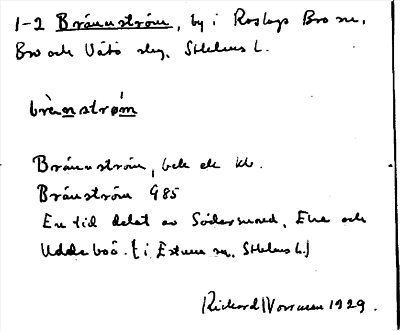 1-2 Brännström, by i Roslags Bro sn,
Bro och Vätö slg, Sthlms L.
brènström
Brännström, bek ek kb.
Bränström G85
En tid delat av Södersund, Elva och
Uddeboö. [i Estuna sn, Sthlms L.]
Rickard 1929.